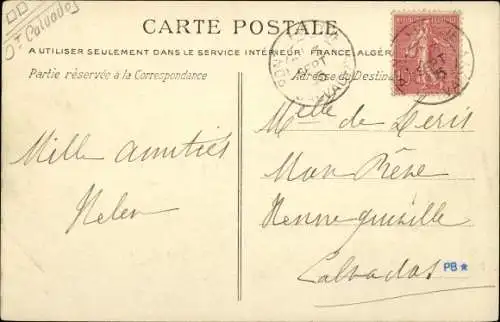 Dt Calvados
CARTE POSTALE
A UTILISER SEULEMENT DANS LE SERVICE INTÉRIEUR FRANCE, ALGÉR
Partie réservée à la Correspondance
Adresse du Destina
SEPT
Melle de Leris
Mille amitiés
Mon Rêve
Helen
Hennequeville
Calvados
PB